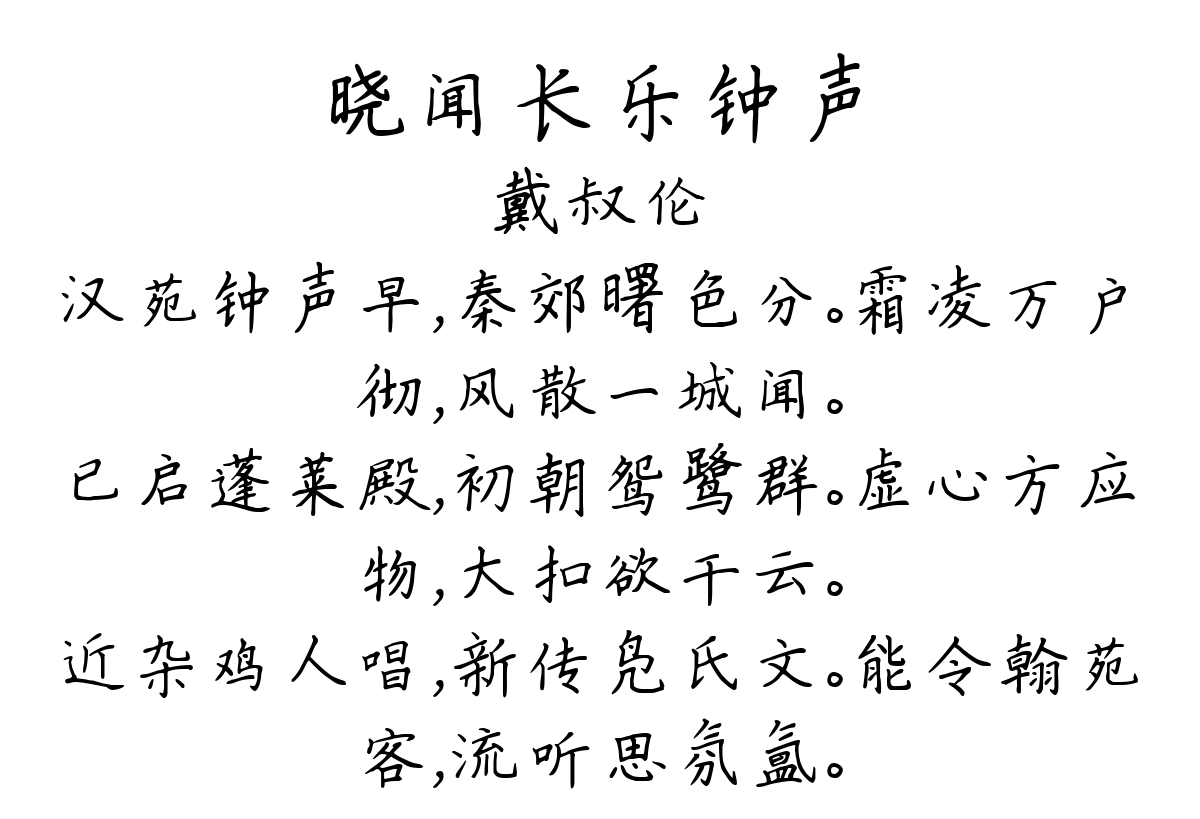 晓闻长乐钟声
戴叔伦
汉苑钟声早,秦郊曙色分。霜凌万户
彻,风散一城闻。
已启蓬莱殿,初朝鸳鹭群。虚心方应
物,大扣欲干云。
近杂鸡人唱,新传凫氏文。能令翰苑
客,流听思氛氲。